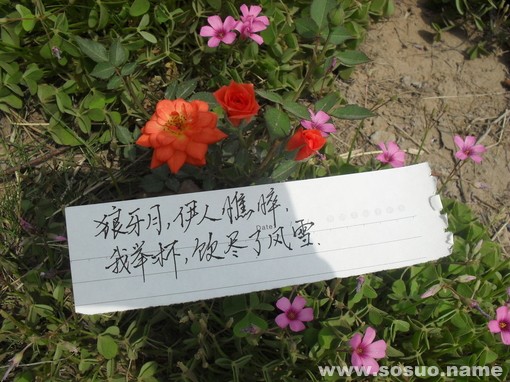 狼牙月，伊人憔悴，
Date
我举杯，饮尽了风雪.
www.sosuo.name